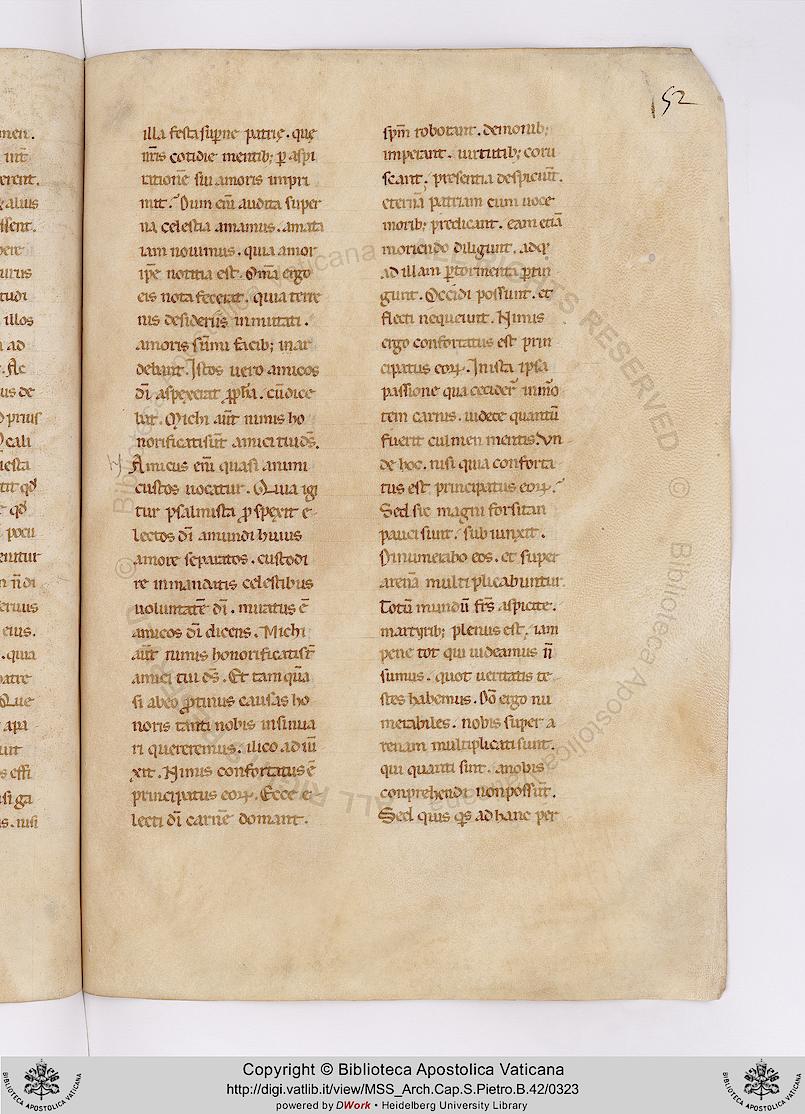 52
illa festa sup̲ne patrię. quę
nr̄is cotidie mentib; p aspi
rationē sui amoris impri
mit. Dum eni̅ audita super
na celestia amamus. amata
iam novimus. quia amor
ipse notitia est. Om̄a ergo
eis nota fecerat. quia terre
nis desideriis inmutati.
amoris summi facib; inar
debant. Istos uero amicos
dī aspexerat ꝓph̄a. cū dice
bat. Michi aūt nimis ho
norificati sūt amici tui dš.
Amicus eni̅ quasi animi
custos uocatur. Quia igi
tur psalmista ꝓspexit e
lectos dī a mundi huius
amore separatos. custodi
re in mandatis celestibus
uoluntatē dī. miratus ē
amicos dī dicens. Michi
aūt nimis honorificati st̄
amici tui dš. Et tam quā
si ab eo ꝓtinus causas ho
noris tanti nobis insinua
ri quereremus. ilico adiū
xit. Nimis confortatus ē
principatus eoꝝ. Ecce e
lecti dī carnē domant.
sp̄m roborant. demonib;
imperant. uirtutib; coru
scant. presentia despiciūt.
eternā patriam cum uoce
morib; predicant. eam etiā
moriendo diligunt. adq;
ad illam p tormenta p̲tin
gunt. Occidi possunt. et
flecti nequeiunt. Nimis
ergo confortatus est prin
cipatus eoꝝ. In ista ipsa
passione qua cecider̄ in mo
tem carnis. uidete quantū
fuerit culmen mentis. Un
de hoc. nisi quia conforta
tus est principatus eoꝝ.
Sed sic magni forsitan
pauci sunt. subiunxit.
Dinumerabo eos. et super
arenā multiplicabuntur.
Totū mundū fr̄s aspicite.
martyrib; plenus est. iam
pene tot qui uideamus n̄
sumus. quot ueritatis te
stes habemus. Dō ergo nu
merabiles. nobis super a
renam multiplicati sunt.
qui quanti sint. a nobis
conprehendi non possūt.
Sed quis qs ad hanc per
Copyright © Biblioteca Apostolica Vaticana
http://digi.vatlib.it/view/MSS_Arch.Cap.S.Pietro.B.42/0323
powered by DWork • Heidelberg University Library